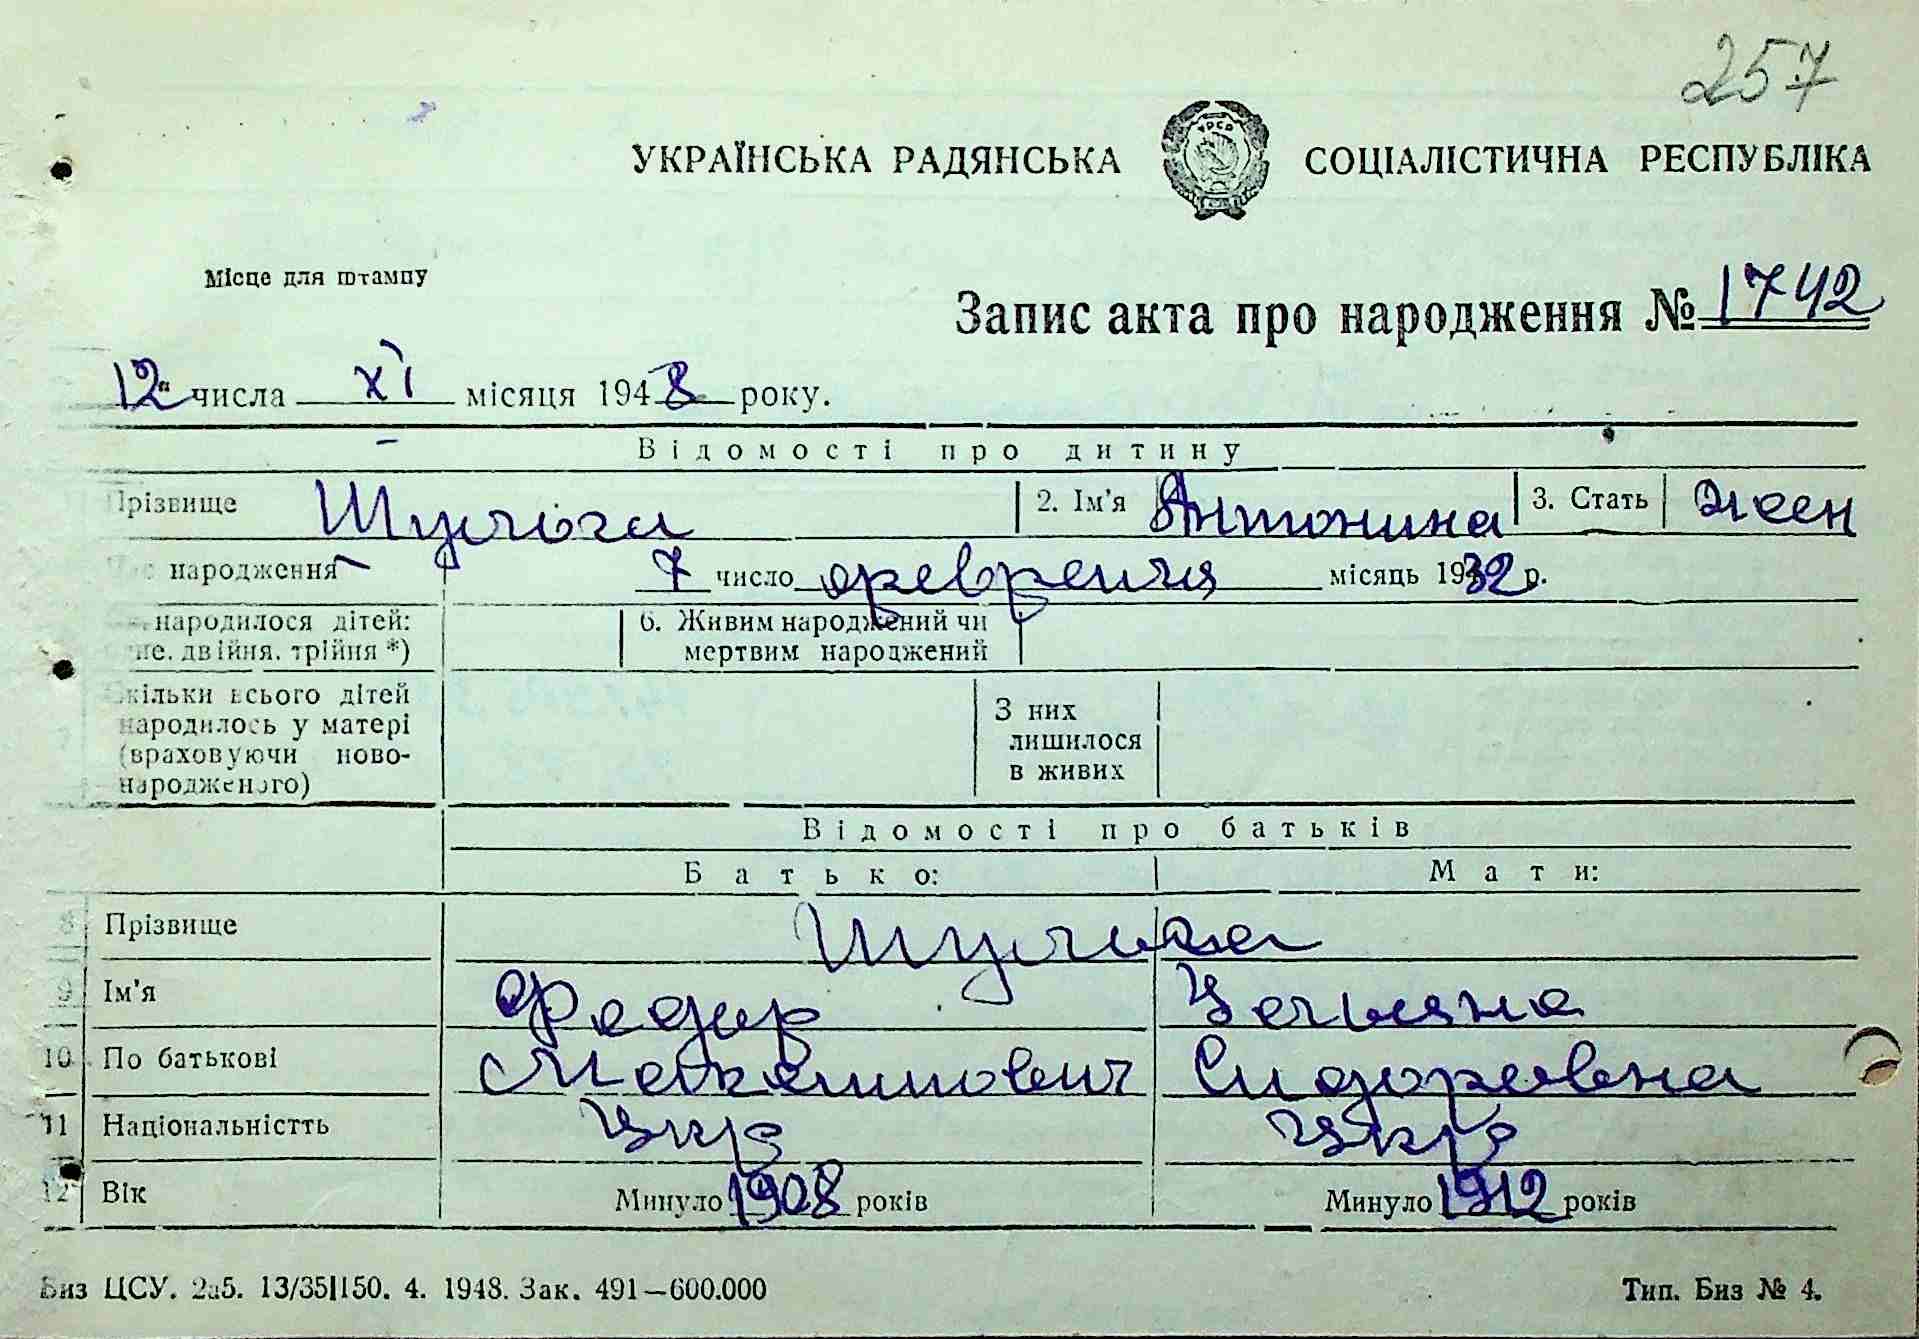 257
УКРАЇНСЬКА РАДЯНСЬКА СОЦІАЛІСТИЧНА РЕСПУБЛІКА
Місце для штампу
Запис акта про народження № 1742
12 числа XI місяця 1948 року.
Відомості про дитину
Прізвище 2. Ім'я Антонина 3. Стать жен
народження 7 число февреиля місяць 1932 р.
народилося дітей: 6. Живим народжений чи
не. двійня. трійня *) мертвим народжений
Скільки всього дітей
народилось у матері З них
(враховуючи ново- лишилося
народженого) в живих
Відомості про батьків
Батько: Мати:
8 Прізвище
9 Ім'я Федир
10 По батькові Сидоровна
11 Національністть Укр Укр
12 Вік Минуло 1908 років Минуло 1912 років
Биз ЦСУ. 2а5. 13/35|150. 4. 1948. Зак. 491—600.000 Тип. Биз № 4.